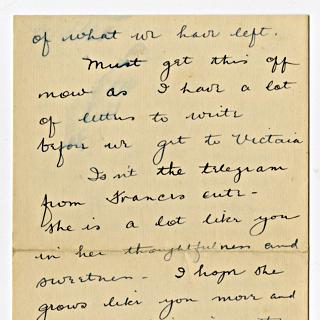 of what we have left.
Must get this off
now as I have a lot
of letters to write
before we get to Victoria
Isn't the telegram
from Francis cute -
she is a lot like you
in her thoughtfulness and
sweetness - I hope she
grows like you more and